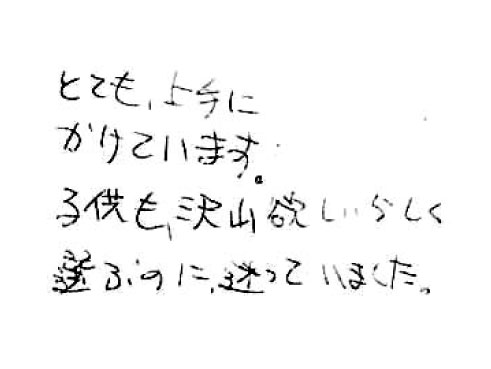 とても、上手に
かけています。
子供も、沢山欲しいらしく
選ぶのに、迷っていました。